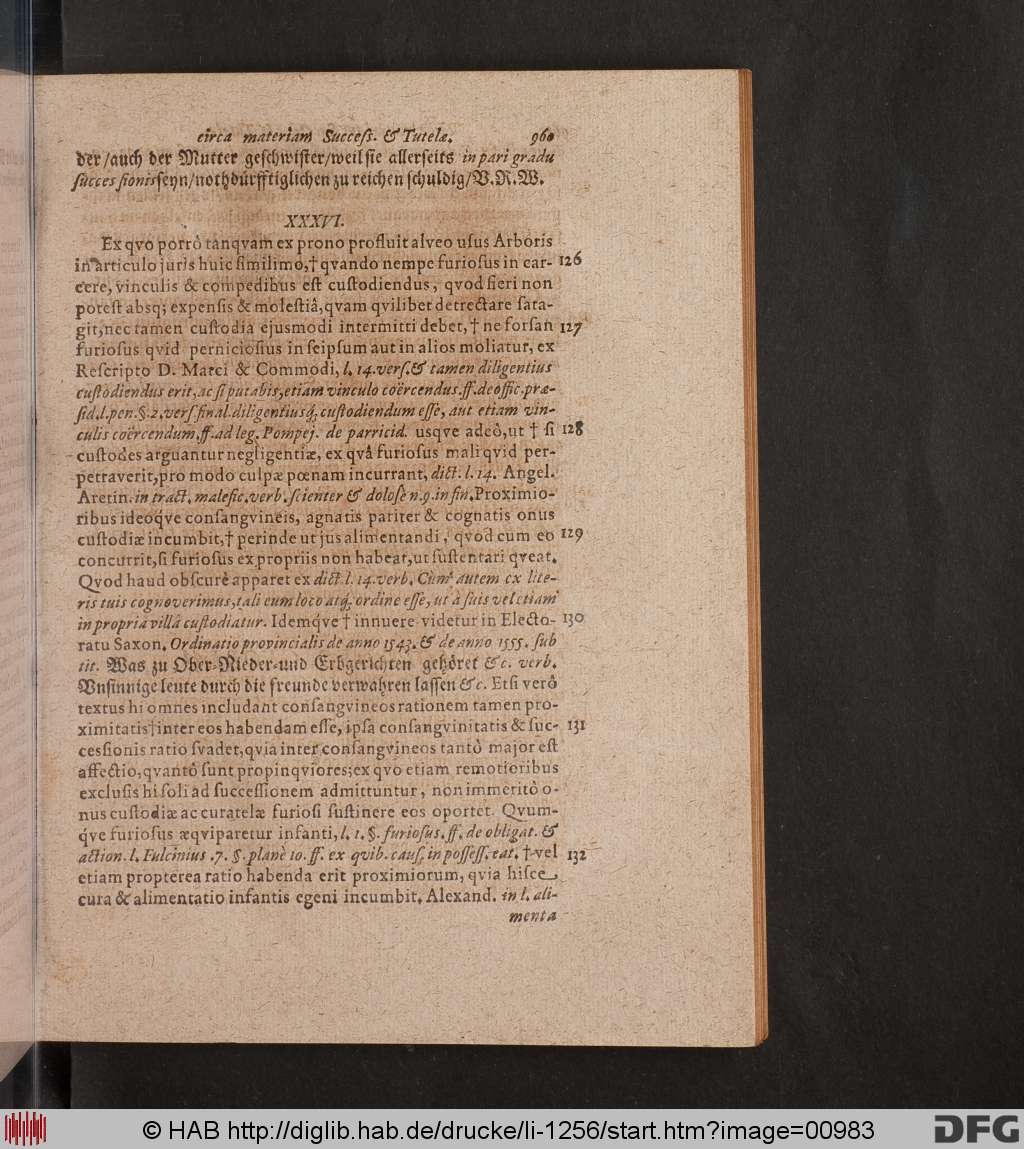 circa materiam Success. & Tutelæ. 960
der/auch der Mutter geschwister/weil sie allerseits in pari gradu
successionis seyn/nothdürfftiglichen zu reichen schuldig/V.R.W.
XXXVI.
Ex qvo porrò tanqvam ex prono profluit alveo usus Arboris
in articulo juris huic similimo,† qvando nempe furiosus in car- 126
cere, vinculis & compedibus est custodiendus, qvod fieri non
potest absq; expensis & molestiâ, qvam qvilibet detrectare sata-
git, nec tamen custodia ejusmodi intermitti debet, † ne forsan 127
furiosus qvid perniciosius in seipsum aut in alios moliatur, ex
Rescripto D. Marci & Commodi, l. 14. vers. & tamen diligentius
custodiendus erit, ac si putabis, etiam vinculo coërcendus. ff. de offic. præ-
sid. l. pen. §. 2. vers final. diligentiusq; custodiendum esse, aut etiam vin-
culis coërcendum, ff. ad leg. Pompej. de parricid. usqve adeò, ut † si 128
custodes arguantur negligentiæ, ex qvâ furiosus mali qvid per-
petraverit, pro modo culpæ pœnam incurrant, dict. l. 14. Angel.
Aretin. in tract. malefic. verb. scienter & dolosè n. 9. in fin. Proximio-
ribus ideoqve consangvineis, agnatis pariter & cognatis onus
custodiæ incumbit, † perinde ut jus alimentandi, qvod cum eo 129
concurrit, si furiosus ex propriis non habeat, ut sustentari qveat.
Qvod haud obscurè apparet ex dict. l. 14. verb. Cùm autem ex lite-
ris tuis cognoverimus, tali eum loco atq; ordine esse, ut à suis vel etiam
in propria villâ custodiatur. Idemqve † innuere videtur in Electo- 130
ratu Saxon. Ordinatio provincialis de anno 1543. & de anno 1555. sub
tit. Was zu Ober-Nieder-und Erbgerichten gehöret &c. verb.
Vnsinnige leute durch die freunde verwahren lassen &c. Etsi verò
textus hi omnes includant consangvineos rationem tamen pro-
ximitatis † inter eos habendam esse, ipsa consangvinitatis & suc- 131
cessionis ratio svadet, qvia inter consangvineos tantò major est
affectio, qvantò sunt propinqviores; ex qvo etiam remotioribus
exclusis hi soli ad successionem admittuntur, non immeritò o-
nus custodiæ ac curatelæ furiosi sustinere eos oportet. Qvum-
qve furiosus æqviparetur infanti, l. 1. §. furiosus. ff. de obligat. &
action. l. Fulcinius .7. §. planè 10. ff. ex qvib. caus. in possess. eat. † vel 132
etiam propterea ratio habenda erit proximiorum, qvia hisce
cura & alimentatio infantis egeni incumbit. Alexand. in l. ali-
menta
© HAB http://diglib.hab.de/drucke/li-1256/start.htm?image=00983
DFG